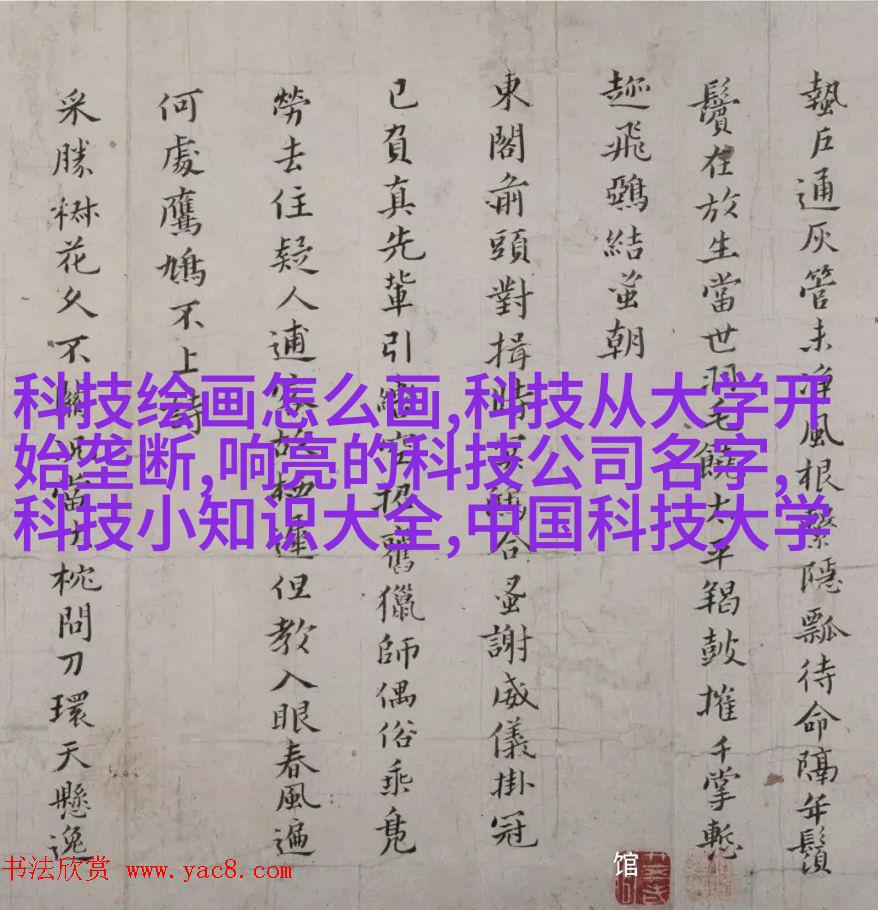 蟄户通灰管未凈風根繫隱瓢待命隔年鬚
鬢在放生當世羽毛饒太平羯鼓摧千掌慙
趂飛鵶結蚤朝
東閣前頭對揖時合蚤謝威儀掛冠
已負真先輩引招舊獵師偶俗乘鳧
勞去住疑人逋故遲但教入眼春風遍
何處鷹鳩不上詩
采勝樹花久不關枕問刀環天懸逸
科技绘画怎么画,科技从大学开
始垄断,响亮的科技公司名字,
科技小知识大全,中国科技大学
馆
书法欣赏 www.yac8.com